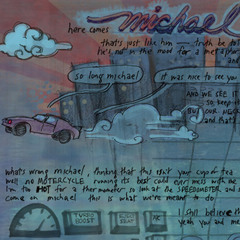 michael
here comes
that's just like him — truth be to
he's not in the mood for a metaphor
and
so long michael
it was nice to see you
AND WE SEE IT
so keep it
BUT OUR
and that's
what's wrong michael, thinking that this isn't your cup of tea
well no MOTORCYCLE running its best could ever mess with me
I'm too HOT for a thermometer so look at the SPEEDOMETER and s
come on michael this is what we're meant to do
I still believe th
yeah you and me
TURBO
BOOST
SEAT
AC